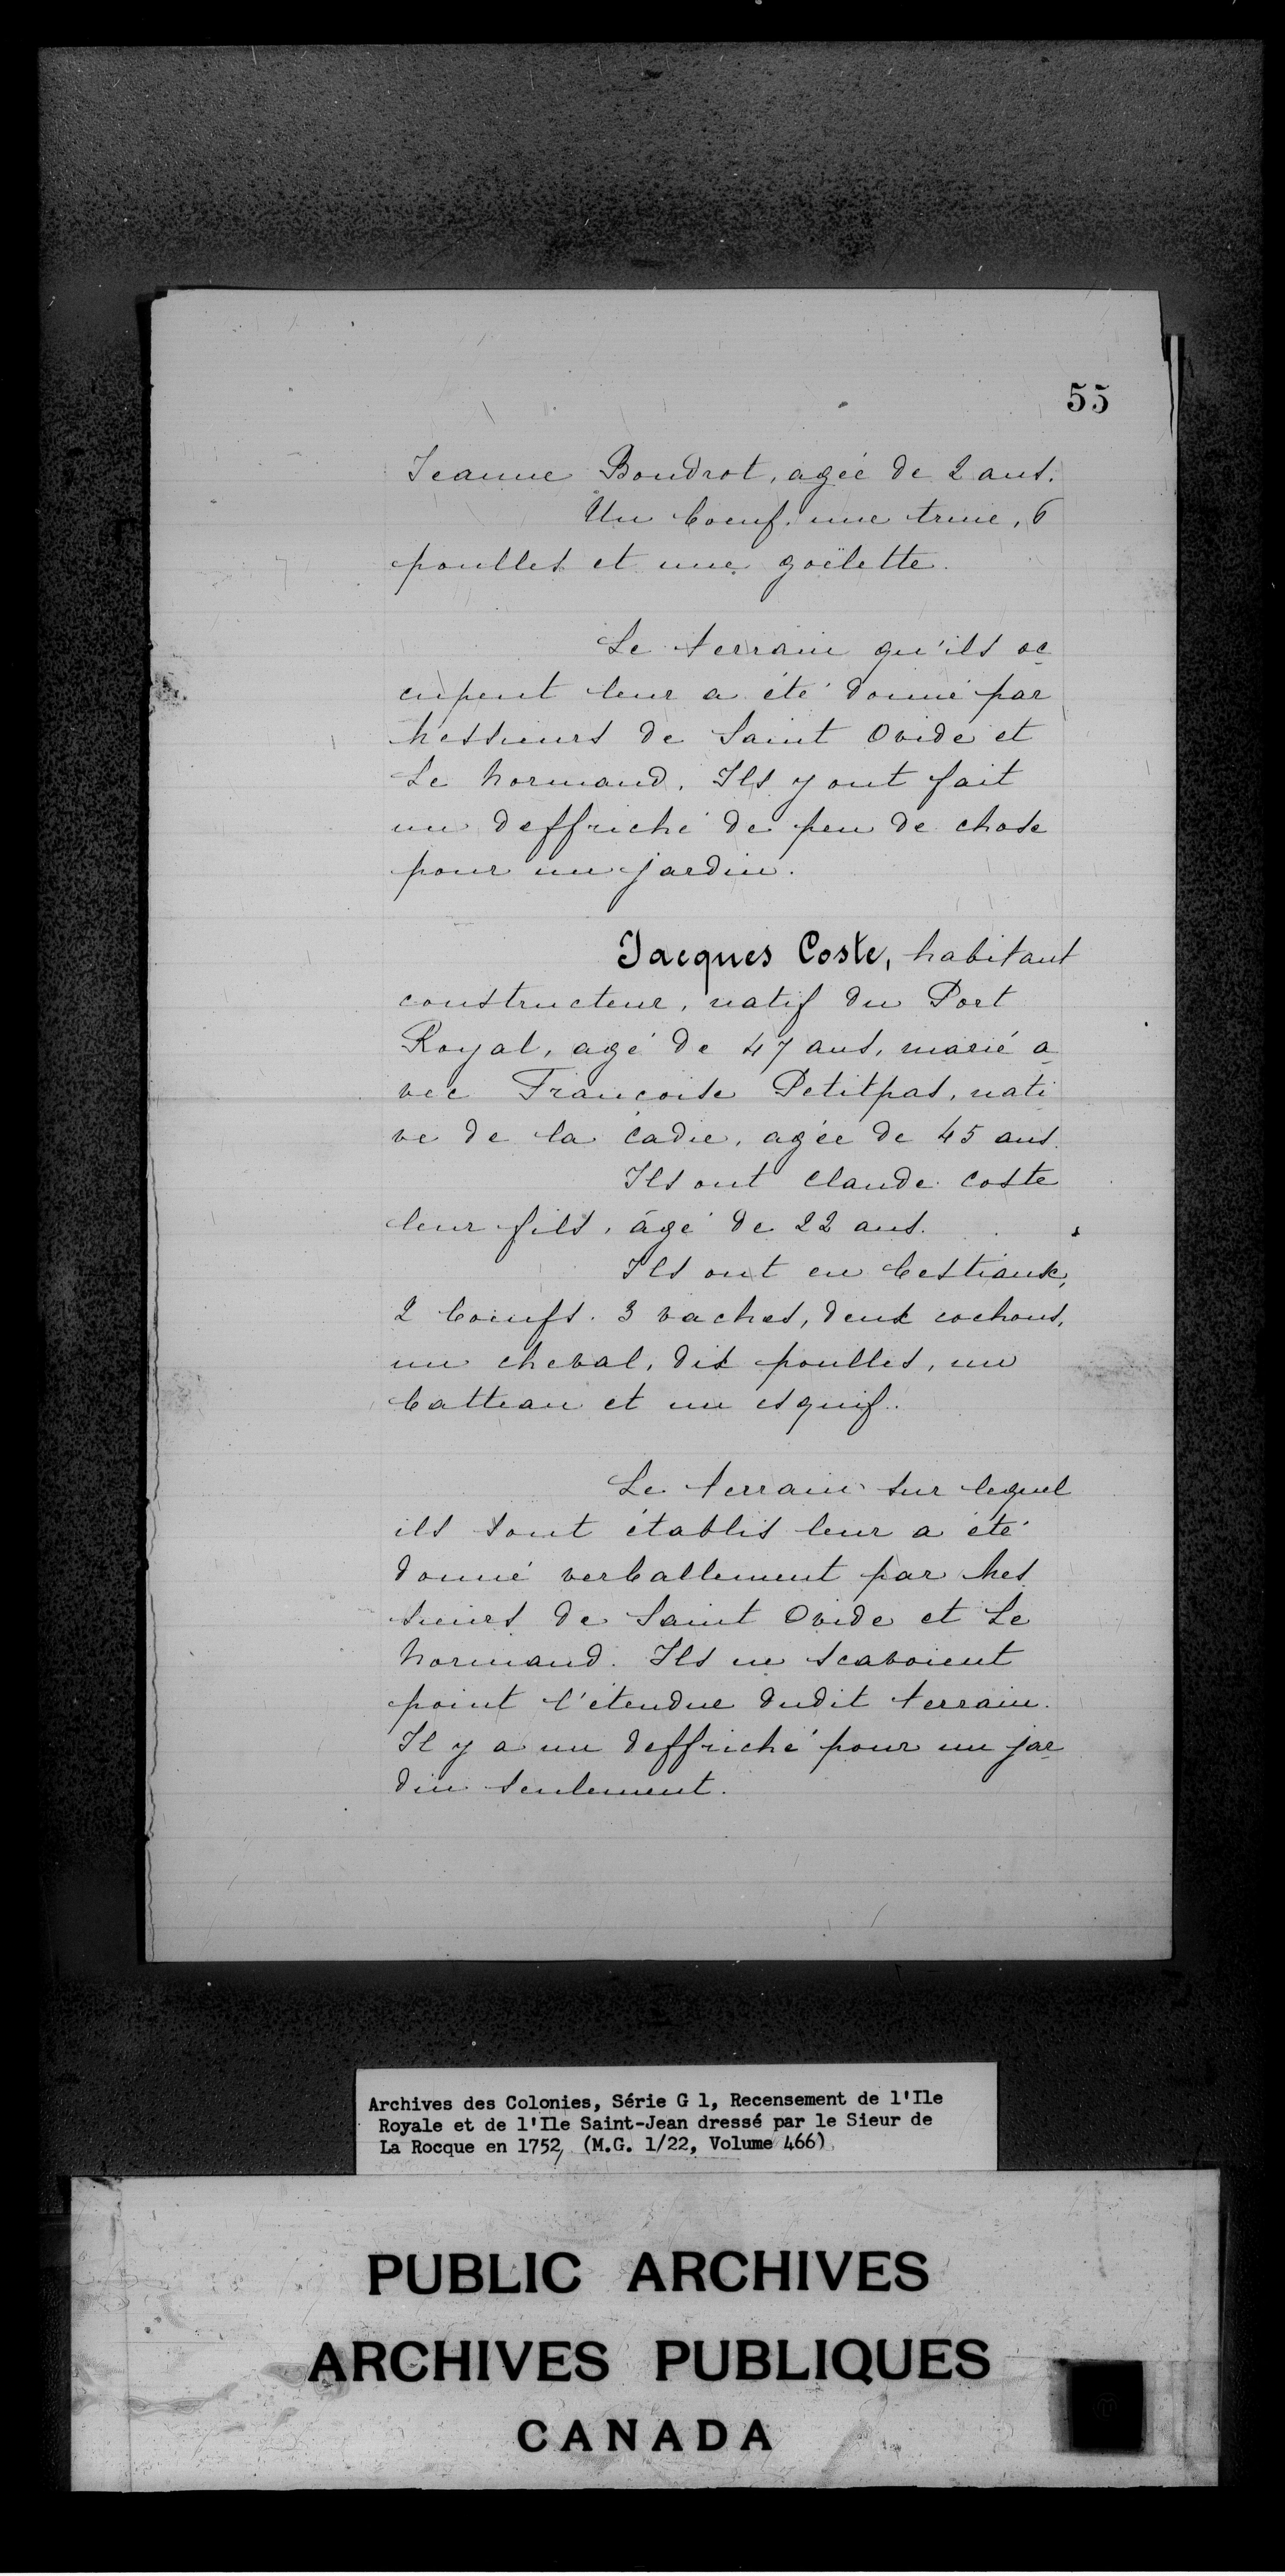 55
Jeanne Boudrot, agée de 2 ans.
Un boeuf, une truie, 6
poulles et une goëlette.
Le terrain qu'ils oc
cupent leur a été donné par
Messieurs de Saint Ovide et
Le Normand. Ils y ont fait
un deffriché de peu de chose
pour un jardin.
Jacques Coste, habitant
constructeur, natif du Port
Royal, agé de 47 ans, marié a
vec Françoise Petitpas, nati
ve de la cadie, agée de 45 ans.
Ils ont Claude Coste
leur fils, âgé de 22 ans.
Ils ont en bestiaux,
2 boeufs, 3 vaches, deux cochons,
un cheval, dix poulles, un
batteau et un esquif.
Le terrain sur lequel
ils sont établis leur a été
donné verballement par Mes
sieurs de Saint Ovide et Le
Normand. Ils ne scavoient
point l'étendue dudit terrain.
Il y a un deffriché pour un jar
din seulement.
Archives des Colonies, Série G 1, Recensement de l'Ile
Royale et de l'Ile Saint-Jean dressé par le Sieur de
La Rocque en 1752, (M.G. 1/22, Volume 466)
PUBLIC ARCHIVES
ARCHIVES PUBLIQUES
CANADA